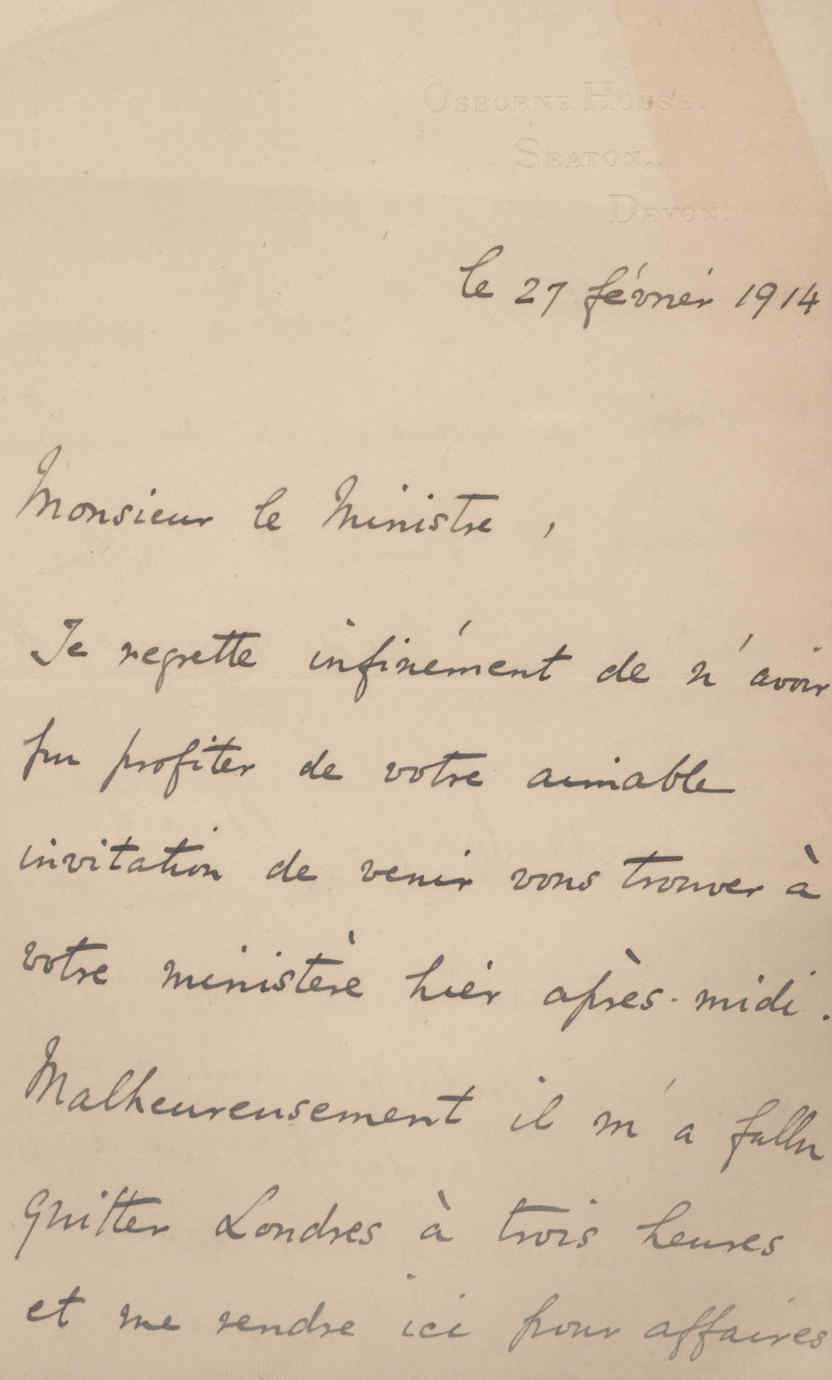 OSBORNE HOUSE,
SEATON,
DEVON.
le 27 février 1914
Monsieur le Ministre,
Je regrette infiniment de n'avoir
pu profiter de votre aimable
invitation de venir vous trouver à
votre ministère hier après-midi.
Malheureusement il m'a fallu
quitter Londres à trois heures
et me rendre ici pour affaires